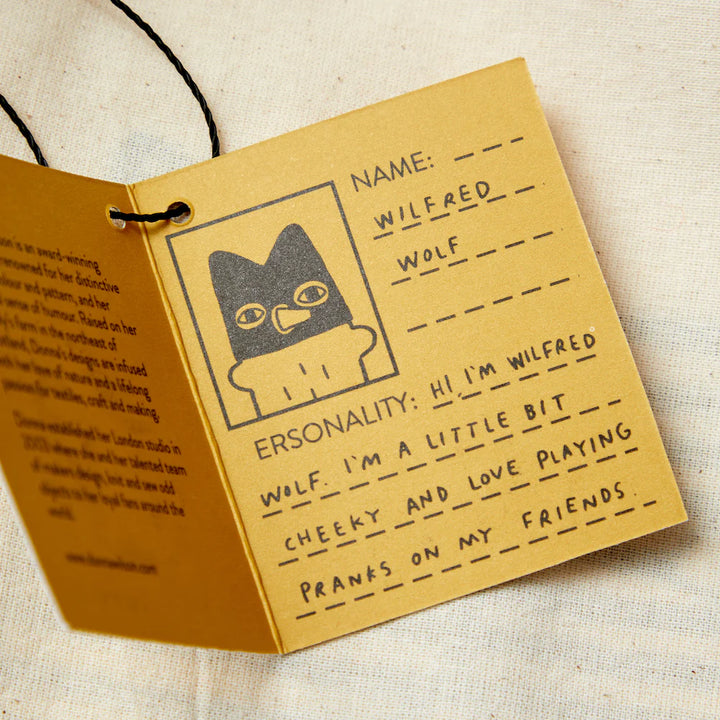 son is an award-winning
renowned for her distinctive
colour and pattern, and her
sense of humour. Raised on her
farm in the northeast of
Donna's designs are infused
with her love of nature and a lifelong
passion for textiles, craft and making.
Donna established her London studio in
2003 where she and her talented team
of makers design, knit and sew odd
objects to her loyal fans around the
world.
www.donnawilson.com
NAME:
WILFRED
WOLF
ERSONALITY: HI, I'M WILFRED
WOLF. I'M A LITTLE BIT
CHEEKY AND LOVE PLAYING
PRANKS ON MY FRIENDS.